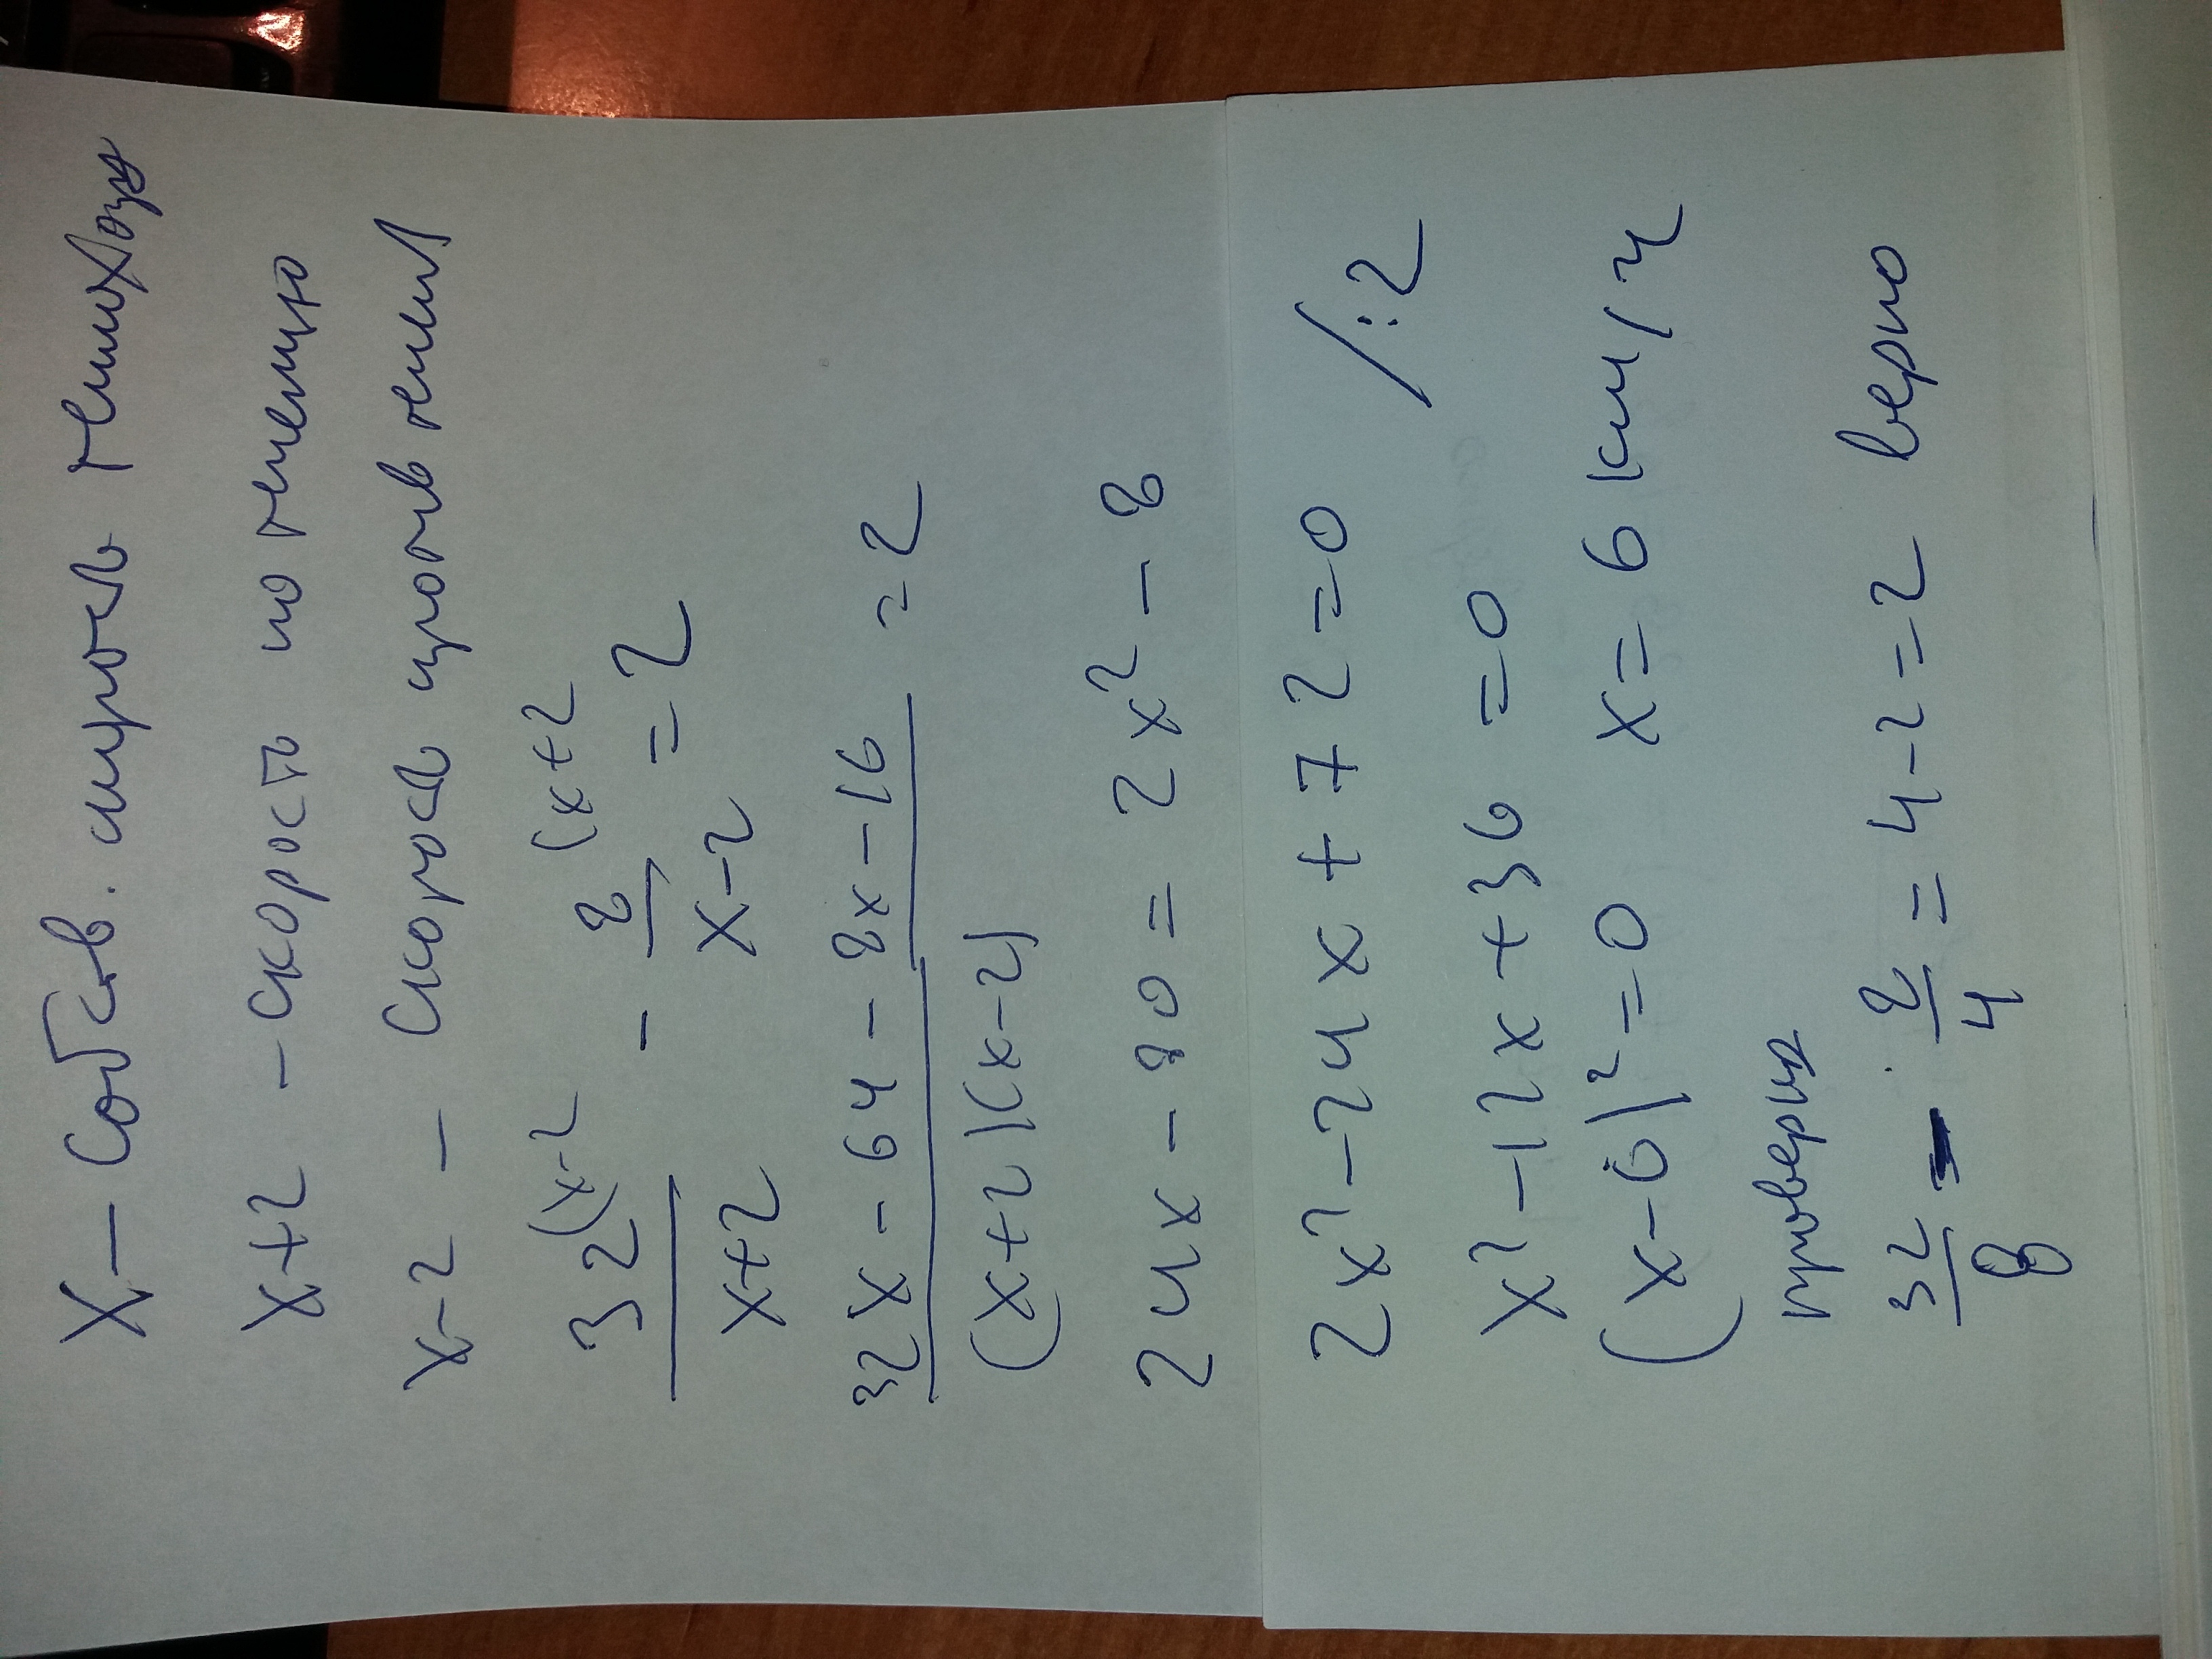 x – собств. скорость теплохода
x+2 – скорость по течению
x-2 – скорость против течения
32(x-2 / x+2 - 8(x+2 / x-2 = 2
32x - 64 - 8x - 16 / (x+2)(x-2) = 2
24x - 80 = 2x² - 8
2x² - 24x + 72 = 0 /:2
x² - 12x + 36 = 0
(x-6)² = 0 x = 6 км/ч
проверка
32/8 - 8/4 = 4-2 = 2 верно